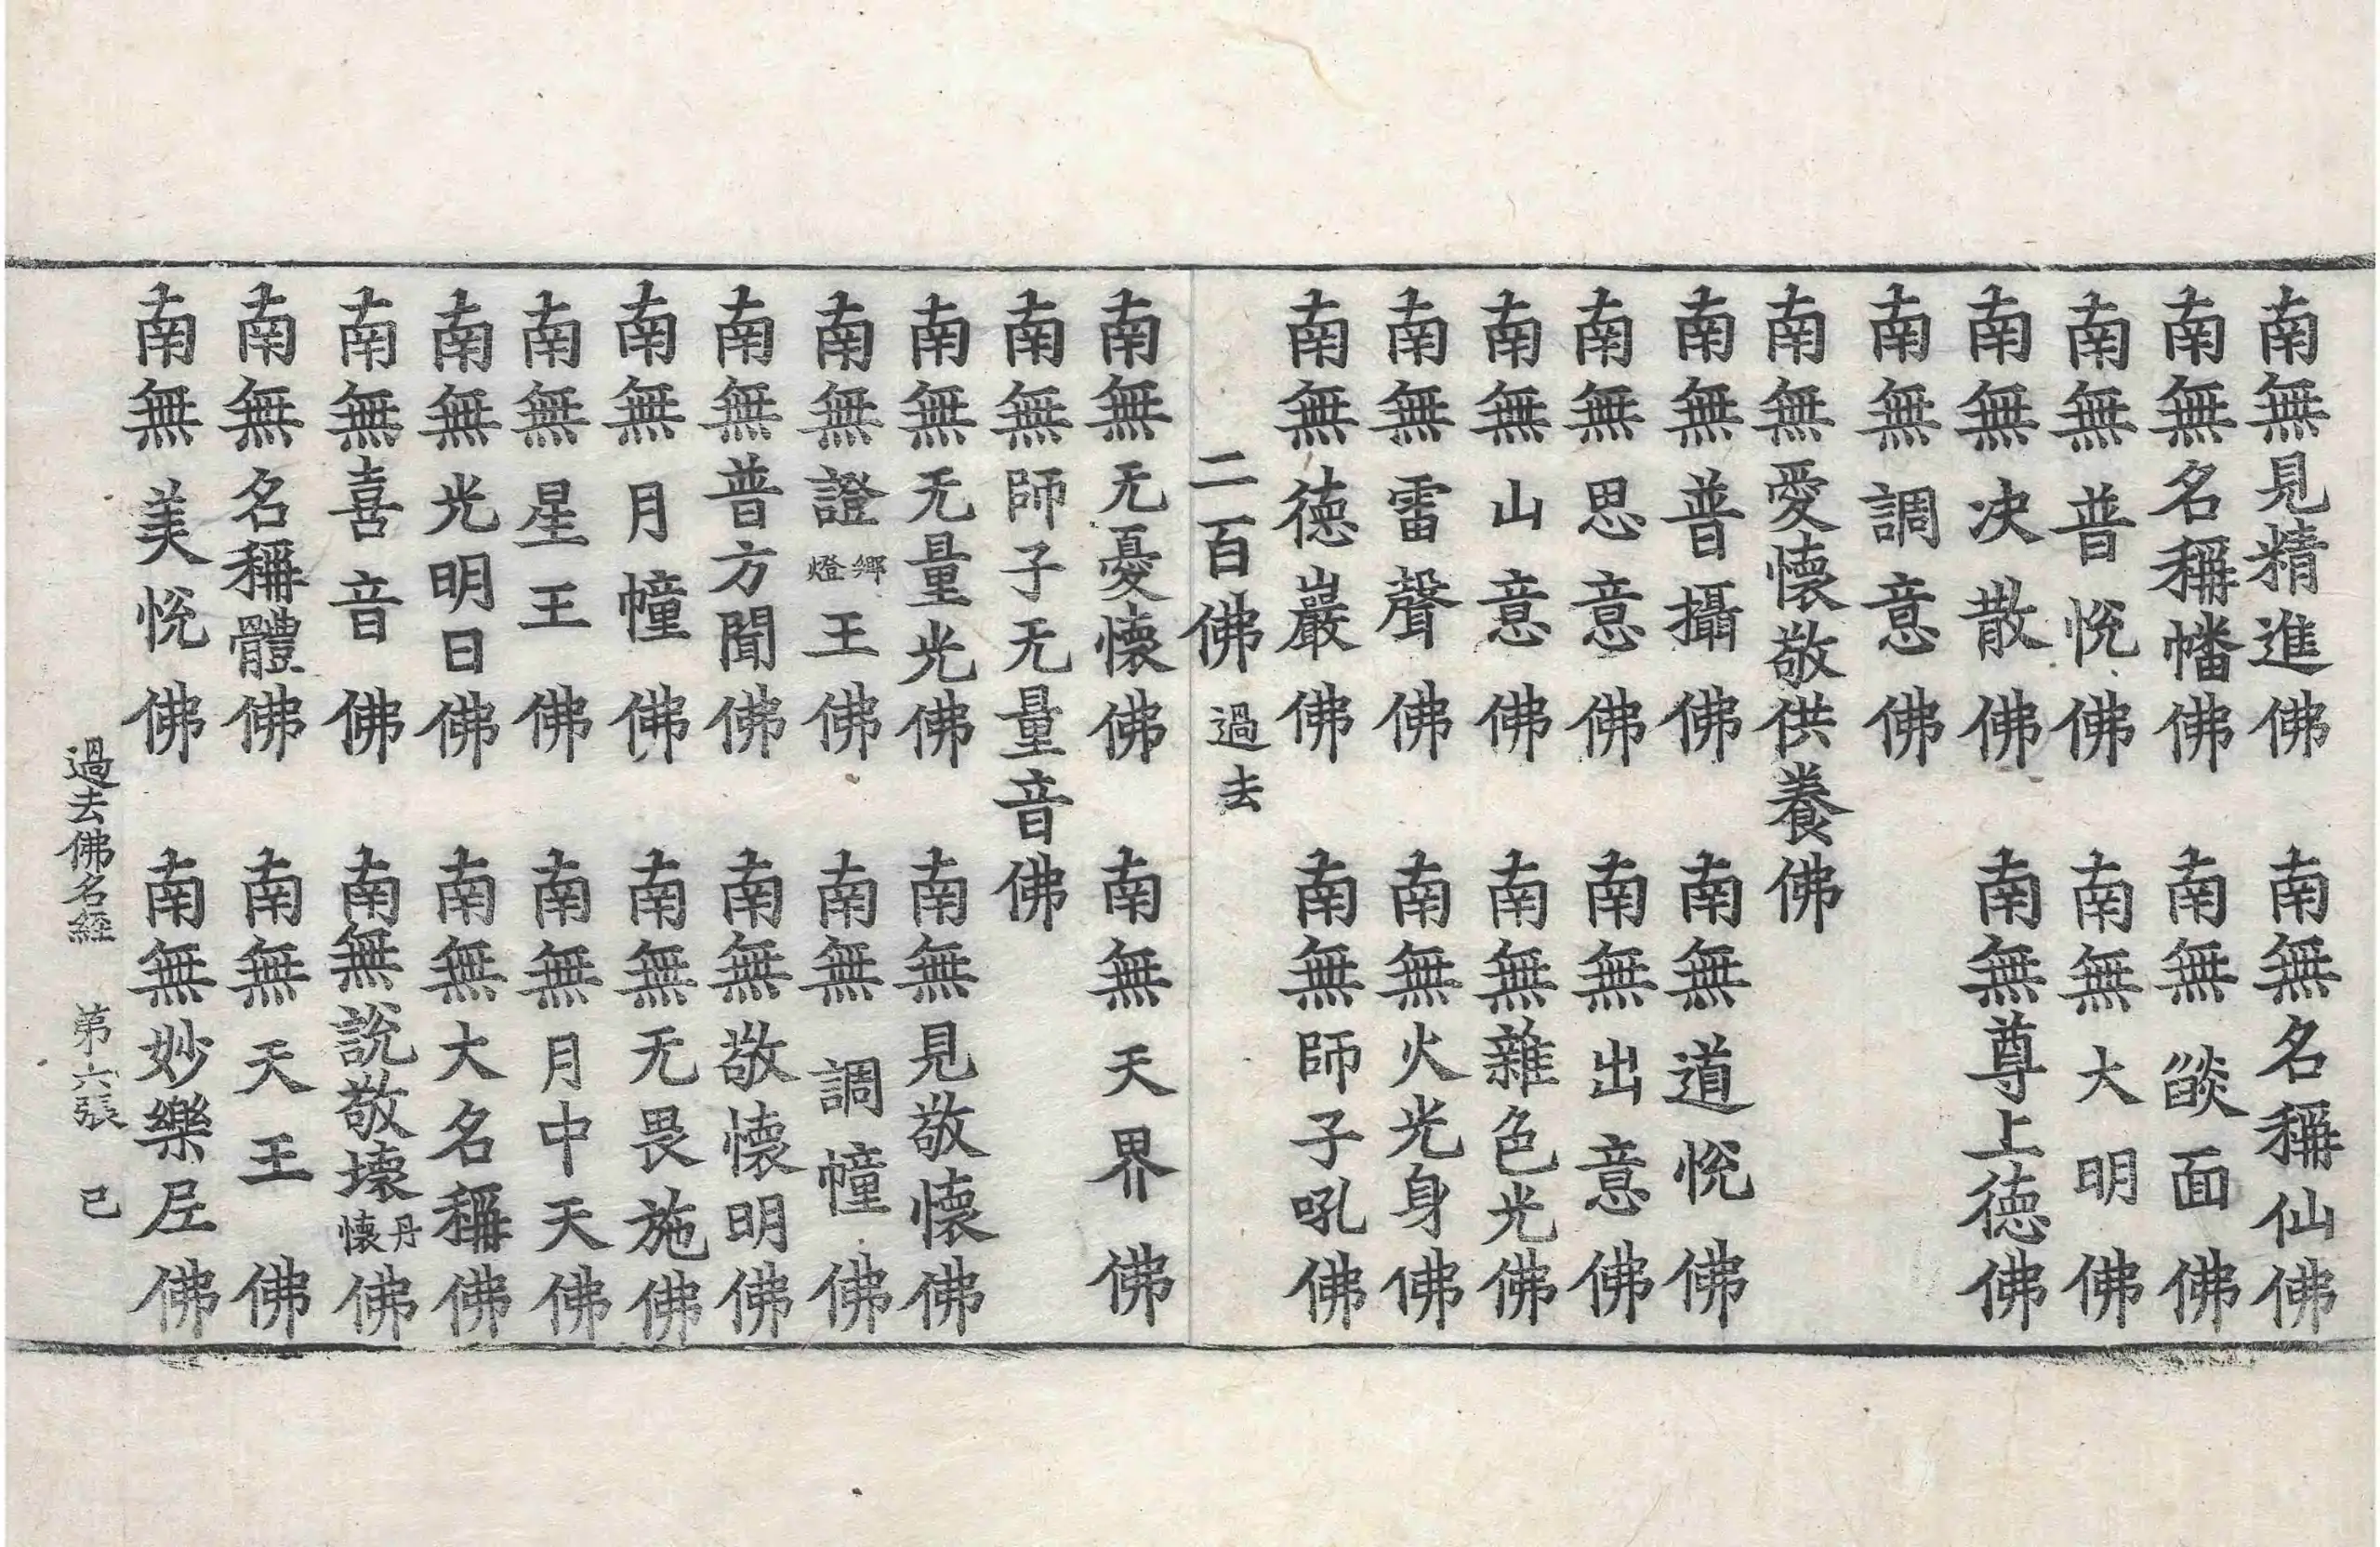 南無見精進佛　南無名稱仙佛
南無名稱幡佛　南無燄面佛
南無普悅佛　南無大明佛
南無決散佛　南無尊上德佛
南無調意佛
南無愛懷敬供養佛
南無普攝佛　南無道悅佛
南無思意佛　南無出意佛
南無山意佛　南無雜色光佛
南無雷聲佛　南無火光身佛
南無德巖佛　南無師子吼佛
二百佛過去
南無无憂懷佛　南無天界佛
南無師子无量音佛
南無无量光佛　南無見敬懷佛
南無證鄉燈王佛　南無調幢佛
南無普方聞佛　南無敬懷明佛
南無月幢佛　南無无畏施佛
南無星王佛　南無月中天佛
南無光明日佛　南無大名稱佛
南無喜音佛　南無說敬壞丹懷佛
南無名稱體佛　南無天王佛
南無美悅佛　南無妙樂𡰱佛
過去佛名經　第六張　已